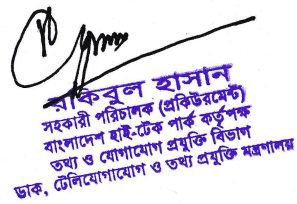 রাকিবুল হাসান
সহকারী পরিচালক (প্রকিউরমেন্ট)
বাংলাদেশ হাই-টেক পার্ক কর্তৃপক্ষ
তথ্য ও যোগাযোগ প্রযুক্তি বিভাগ
ডাক, টেলিযোগাযোগ ও তথ্য প্রযুক্তি মন্ত্রণালয়